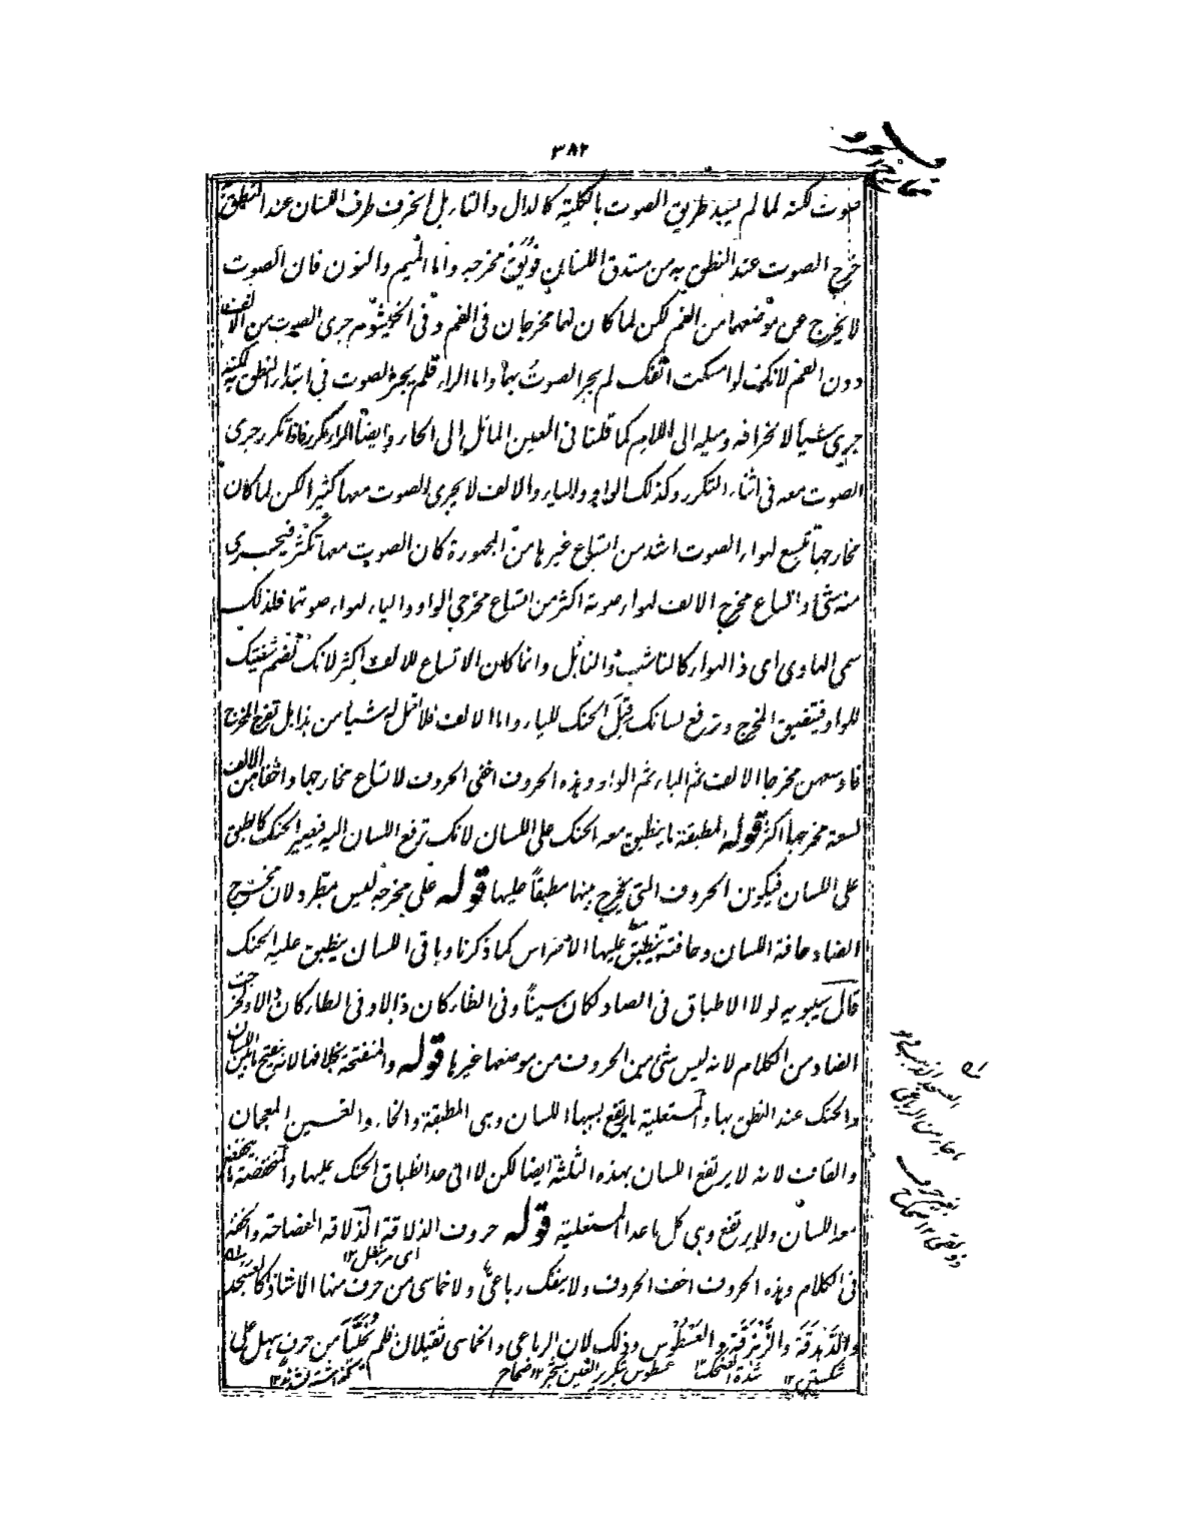 ٣٨٢
صوت لكنه لما لم يسد طريق الصوت بالكلية كالدال والتاء بل انحرف طرف اللسان عند النطق به
خرج الصوت عند النطق به من مستدق اللسان فويق مخرجه واما الميم والنون فان الصوت
لا يخرج عن موضعهما من الفم لكن لما كان لهما مخرجان فى الفم وفى الخيشوم جرى الصوت من الانف
دون الفم لانك لو امسكت انفك لم يجر الصوت بهما واما الراء فلم يجر الصوت فى ابتداء النطق به لكنه
جرى شيأ لانحرافه وميله الى اللام كما قلنا فى العين المائل الى الحاء وايضا الراء مكرر فاذا تكرر جرى
الصوت معه فى اثناء التكرر وكذلك الواو والياء والالف لا يجرى الصوت معها كثيرا لكن لما كان
مخارجها تتسع لهواء الصوت اشد من اتساع غيرها من المجهورة كان الصوت معها تكثر فيجرى
منه شئ واتساع مخرج الالف لهواء صوته اكثر من اتساع مخرجى الواو والياء لهواء صوتهما فلذلك
سمى الهاوى اى ذا الهواء كالناشب والنابل وانما كان الاتساع للالف اكثر لانك تضم شفتيك
للواو فيتضيق المخرج وترفع لسانك قبل الحنك للياء واما الالف فلا تعمل له شيأ من هذا بل تفرج المخرج
فاوسعهن مخرجا الالف ثم الياء ثم الواو وهذه الحروف اخفى الحروف لاتساع مخارجها واخفاهن الالف
لسعة مخرجها اكثر قوله المطبقة ما ينطبق معه الحنك على اللسان لانك ترفع اللسان اليه فيصير الحنك كالطبق
على اللسان فيكون الحروف التى يخرج بينها مطبقا عليها قوله على مخرجه ليس بمطرد لان مخرج
الضاد حافة اللسان وحافته ينطبق عليها الاضراس كما ذكرنا وباقى اللسان ينطبق عليه الحنك
قال سيبويه لولا الاطباق فى الصاد لكان سينا وفى الظاء كان ذالا وفى الطاء كان دالا ولخرجت
الضاد من الكلام لانه ليس شئ من الحروف من موضعها غيرها قوله والمنفتحة بخلافها لانه ينفتح ما بين اللسان
والحنك عند النطق بها والمستعلية ما يرتفع بسببها اللسان وهى المطبقة والخاء والغين المعجمان
والقاف لانه لا يرتفع اللسان بهذه الثلثة ايضا لكن لا الى حد انطباق الحنك عليها والمنخفضة ما ينخفض
معه اللسان ولا يرتفع وهى كل ما عدا المستعلية قوله حروف الذلاقة الذلاقة الفصاحة والخفة
اى مرتفل ١٢
فى الكلام وهذه الحروف اخف الحروف ولا ينفك رباعى ولا خماسى من حرف منها الا شاذ كالعسجد
والدهدقة والزهزقة والعسطوس وذلك لان الرباعى والخماسى ثقيلان فلم يخليا من حرف سهل على
شكستن ١٢ شدة الضحك ١٢